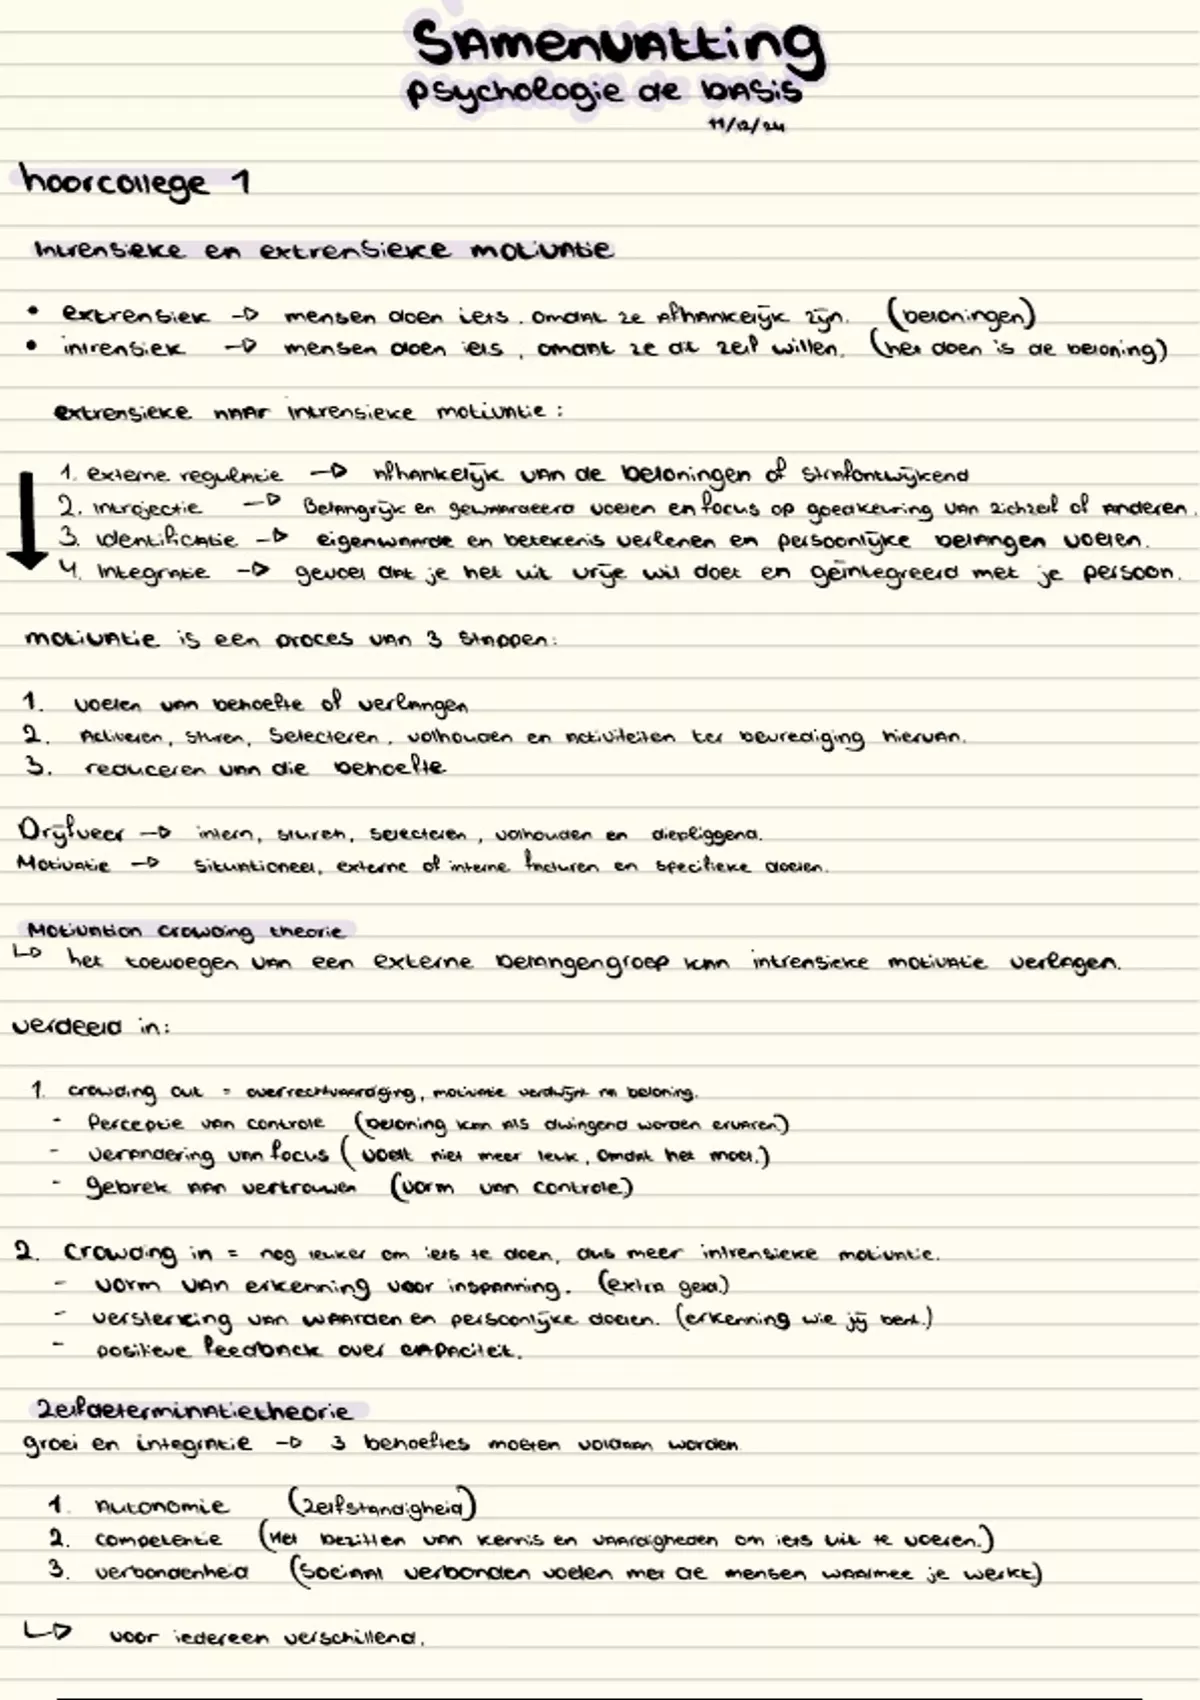 Samenvatting
psychologie de basis
11/12/24
hoorcollege 1
Intrensieke en extrensieke motivatie
• extrensiek → mensen doen iets, omdat ze afhankelijk zijn. (beloningen)
• intrensiek → mensen doen iets, omdat ze dit zelf willen. (het doen is de beloning)
extrensieke naar intrensieke motivatie:
1. externe regulatie → afhankelijk van de beloningen of strafontwijkend
2. introjectie → Belangrijk en gewaardeerd voelen en focus op goedkeuring van zichzelf of anderen.
3. identificatie → eigenwaarde en betekenis verlenen en persoonlijke belangen voelen.
4. Integratie → gevoel dat je het uit vrije wil doet en geïntegreerd met je persoon.
motivatie is een proces van 3 stappen:
1. voelen van behoefte of verlangen
2. Activeren, sturen, selecteren, volhouden en activiteiten ter bevrediging hiervan.
3. reduceren van die behoefte
Drijfveer → intern, sturen, selecteren, volhouden en diepliggend.
Motivatie → situationeel, externe of interne facturen en specifieke doelen.
Motivation crowding theorie
↳ het toevoegen van een externe belangengroep kan intrensieke motivatie verlagen.
verdeeld in:
1. crowding out = overrechtvaardiging, motivatie verdwijnt na beloning.
- Perceptie van controle (beloning kan als dwingend worden ervaren.)
- verandering van focus (voelt niet meer leuk, omdat het moet.)
- gebrek aan vertrouwen (vorm van controle.)
2. Crowding in = nog leuker om iets te doen, dus meer intrensieke motivatie.
- vorm van erkenning voor inspanning. (extra geld.)
- versterking van waarden en persoonlijke doelen. (erkenning wie jij bent.)
- positieve feedback over capaciteit.
Zelfdeterminatietheorie
groei en integratie → 3 behoeftes moeten voldaan worden
1. Autonomie (zelfstandigheid)
2. competentie (Het bezitten van kennis en vaardigheden om iets uit te voeren.)
3. verbondenheid (sociaal verbonden voelen met de mensen waarmee je werkt)
↳ voor iedereen verschillend.